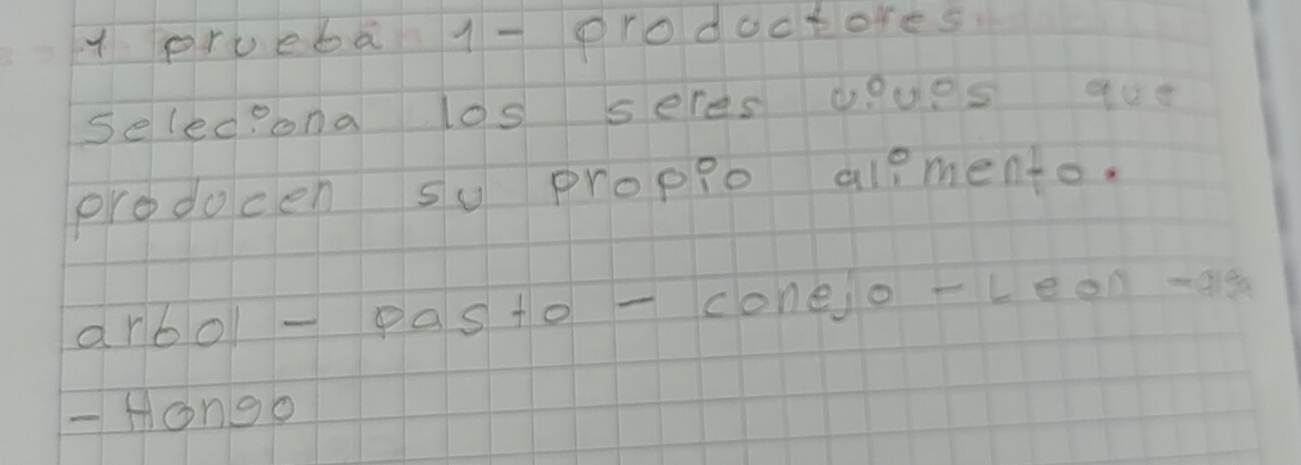 1 prueba 1- productores
Seleciona los seres vives que
producen su propio alimento.
arbol - pasto - conejo - Leon -
- Hongo